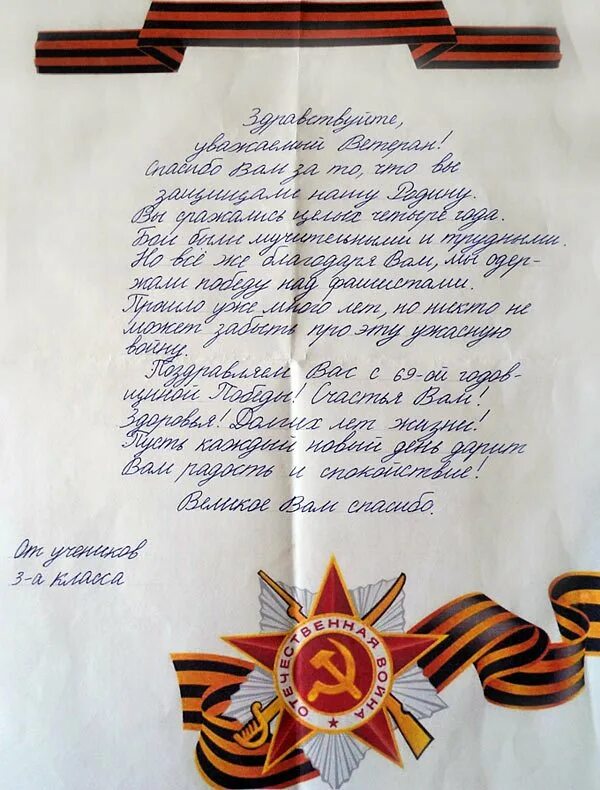 Здравствуйте,
уважаемый Ветеран!
Спасибо Вам за то, что вы
защищали нашу Родину.
Вы сражались целых четыре года.
Бои были мучительными и трудными.
Но всё же благодаря Вам, мы одер-
жали победу над фашистами.
Прошло уже много лет, но никто не
может забыть про эту ужасную
войну.
Поздравляем Вас с 69-ой годов-
щиной Победы! Счастья Вам!
Здоровья! Долгих лет жизни!
Пусть каждый новый день дарит
Вам радость и спокойствие!
Великое Вам спасибо.
От учеников
3-а класса
ОТЕЧЕСТВЕННАЯ ВОЙНА